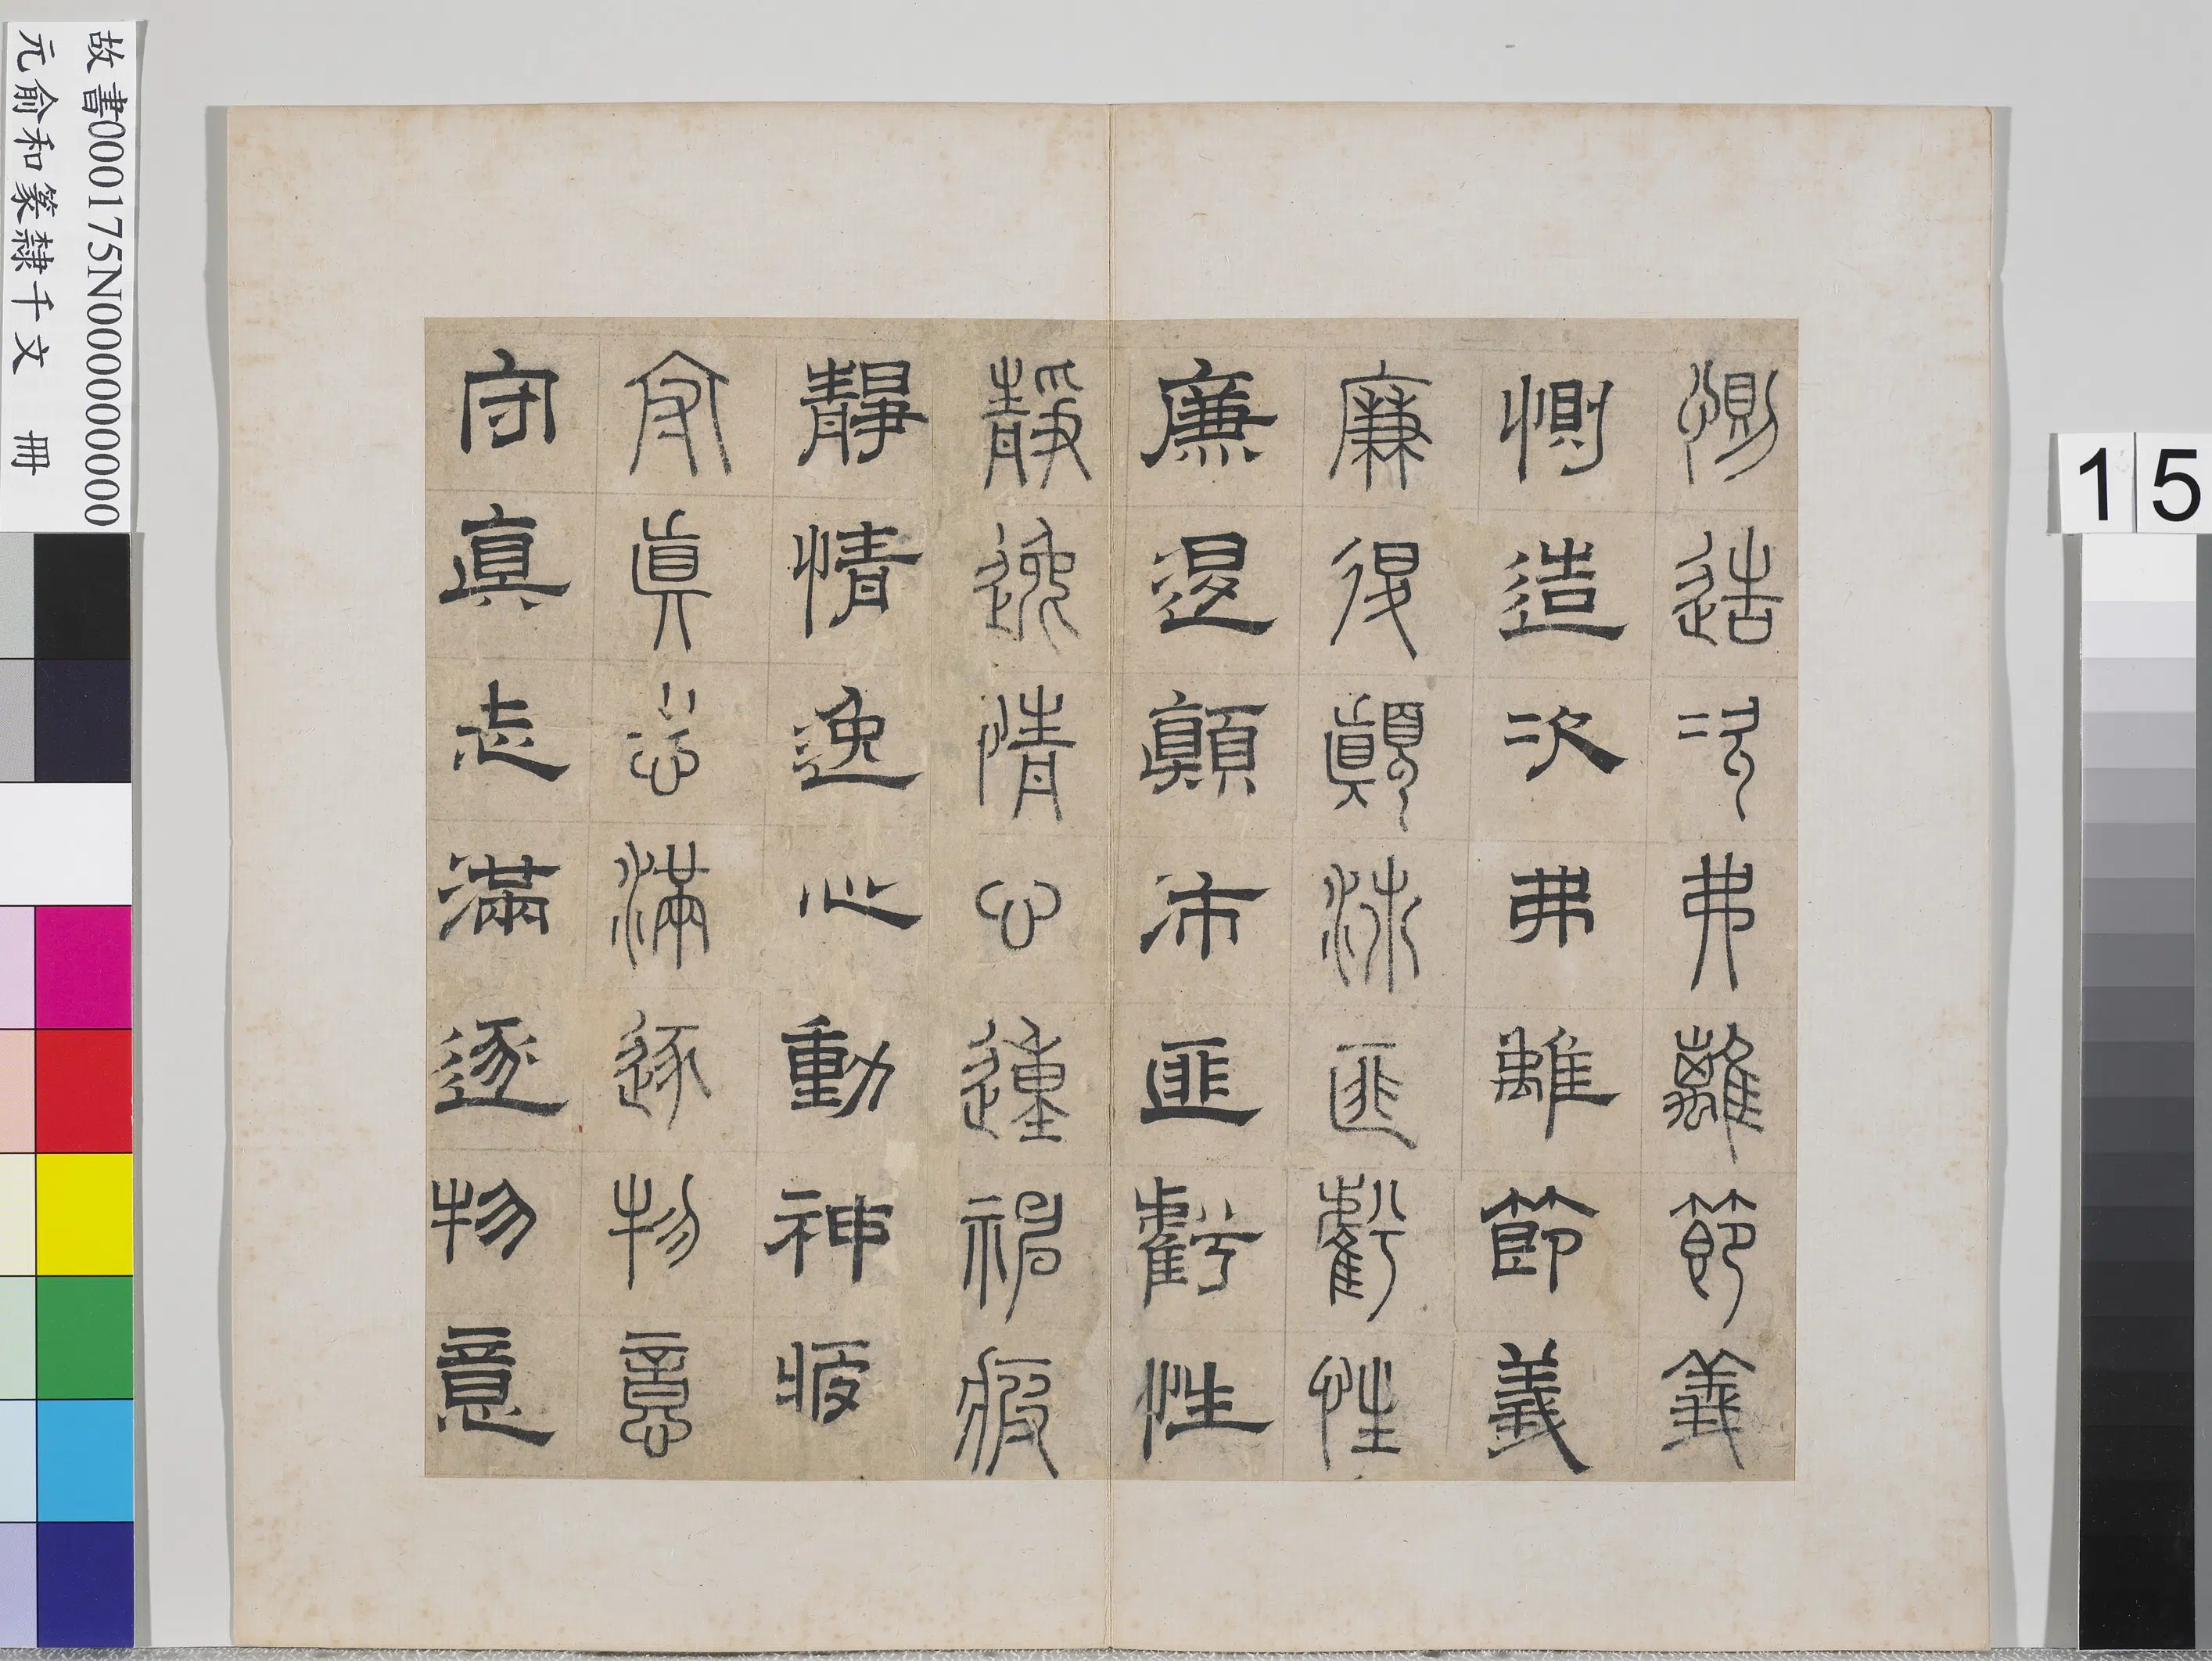 惻造次弗離節義
惻造次弗離節義
廉退顛沛匪虧性
廉退顛沛匪虧性
靜逸情心動神疲
靜情逸心動神疲
守眞志滿逐物意
守眞志滿逐物意
故書000175N000000000
元俞和篆隸千文 冊
15